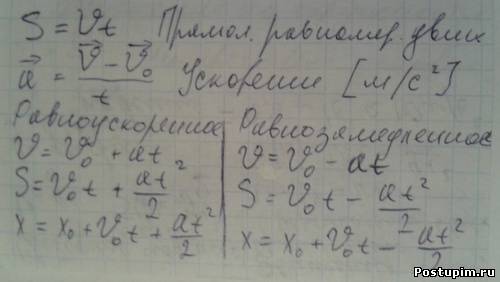 S = υt Прямол. равномер. движ
a⃗ = (υ⃗ – υ⃗₀)/t Ускорение [м/с²]
Равноускоренное
υ = υ₀ + at
S = υ₀t + at²/2
x = x₀ + υ₀t + at²/2
Равнозамедленное
υ = υ₀ – at
S = υ₀t – at²/2
x = x₀ + υ₀t – at²/2
Postupim.ru